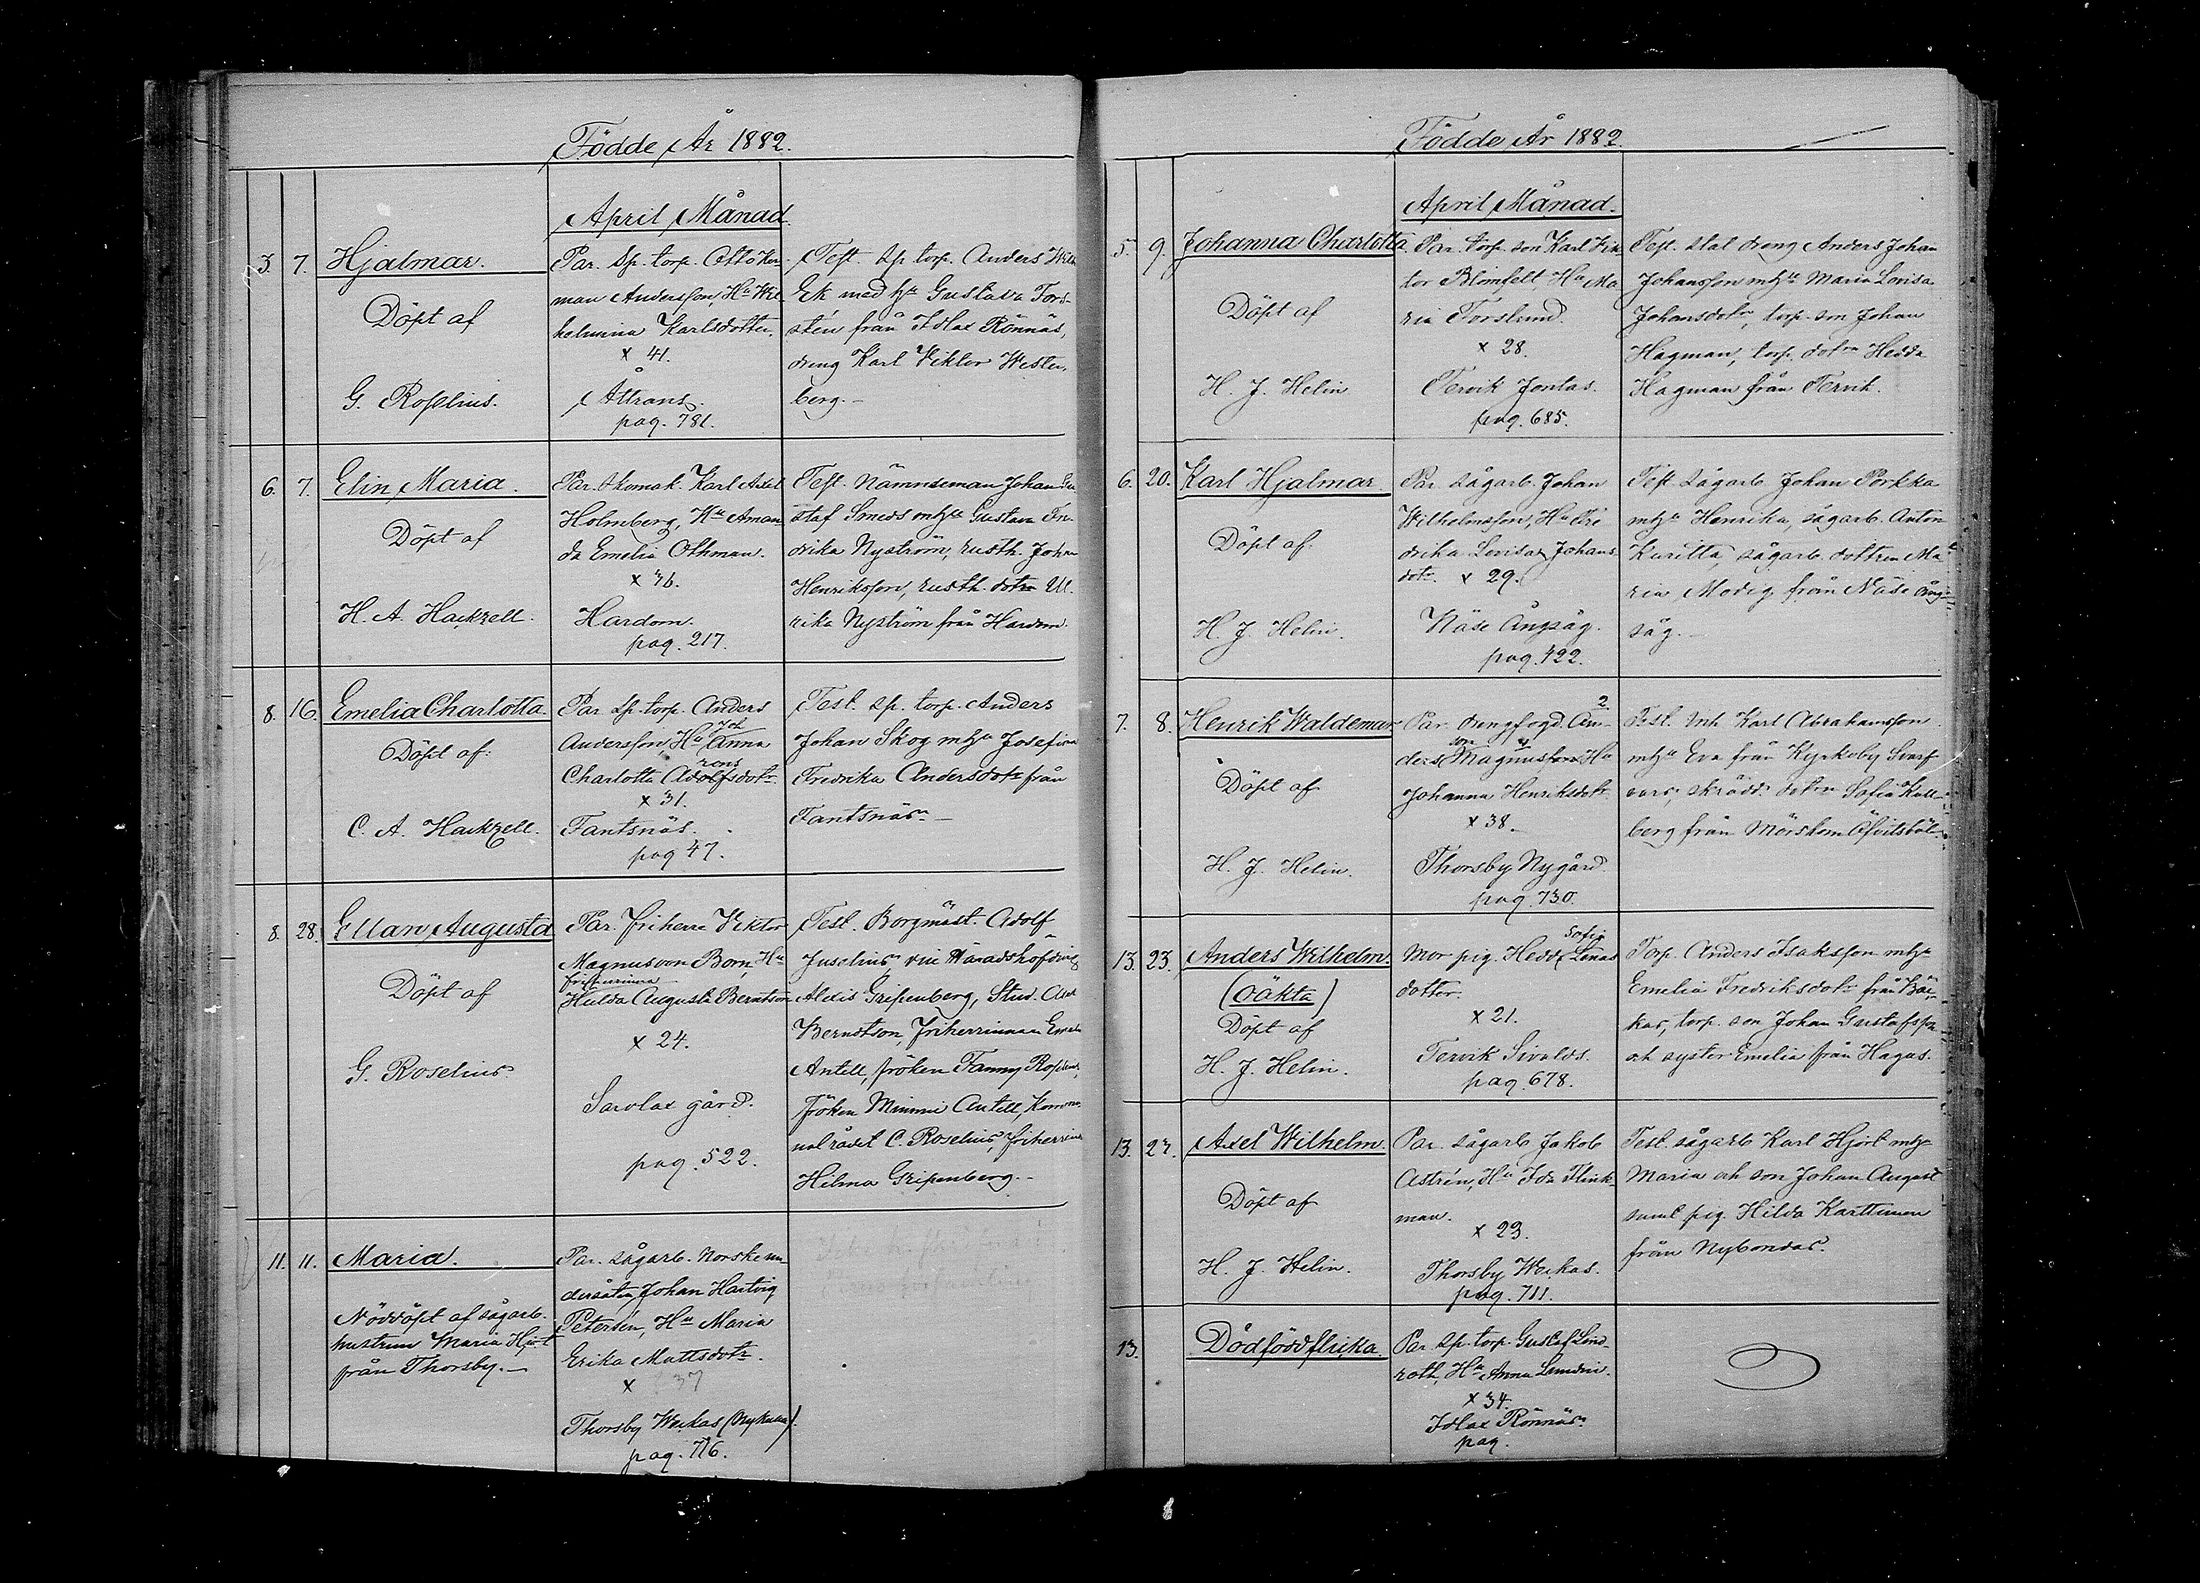 Födde År 1882.
April Månad.
3. 7. Hjalmar.
Döpt af
G. Roselius.
Par. sp. torp. Otto Her-
man Andersson, Hu Wil
helmina Karlsdotter.
x 41.
Åttrans.
pag. 781.
Test. sp. torp. Anders
Ek med hu Gustava Fors-
stén från Idlax Rönnäs,
dreng Karl Viktor Wester-
berg.-
6. 7. Elin Maria.
Döpt af
H. A. Hackzell.
Par. skomak. Karl Axel
Holmberg, Hu Aman
da Emelia Othman.
x 36.
Hardom.
pag. 217.
Test. Nämndeman Johan Gu
staf Smeds mhu Gustava Fre-
drika Nyström, rusth. Johan
Henriksson, rusth. dotrn Ul
rika Nyström från Hardom.
8. 16. Emelia Charlotta.
Döpt af
C. A. Hackzell.
Par. sp. torp. Anders
Andersson, Hu Anna
Charlotta Adolfsdotr
x 31.
Fantsnäs.
pag 47.
Test. sp. torp. Anders
Johan Skog mhu Josefina
Fredrika Andersdotr från
Fantsnäs.-
8. 28. Ellan Augusta
Döpt af
G. Roselius.
Par. friherre Viktor
Magnus von Born, Hu
friherrinna
Hulda Augusta Berntson
x 24.
Sarvlax gård.
pag. 522.
Test. Borgmäst. Adolf
Juselius, vice Häradshöfding
Alexis Gripenberg, Stud. Axel
Berndtson, friherrinnan Emelie
Antell, fröken Fanny Roselius,
fröken Mimmi Antell, Kommu-
nalrådet C. Roselius, friherrinn
Hilma Gripenberg.-
11. 11. Maria.
Nöddöpt af sågarb.
hustrun Maria Hjort
från Thorsby.-
Par. sågarb. Norske un-
dersåten Johan Hartvig
Petersén, Hu Maria
Erika Mattsdotr.
x 37
Thorsby Weckas (Nykulla).
pag. 716.
Födde År 1882.
April Månad.
5. 9. Johanna Charlotta
Döpt af
H. J. Helin
Par. torp. son Karl Vik
tor Blomfelt, Hu Ma
ria Forslund.
x 28.
Tervik Jontas.
pag. 685.
Test. stat dreng Anders Johan
Johansson mhu Maria Lovisa
Johansdotr, torp. son Johan
Hagman, torp. dotrn Hedda
Hagman från Tervik.
6. 20. Karl Hjalmar
Döpt af.
H. J. Helin.
Par. sågarb. Johan
Wilhelmsson, Hu Fre
drika Lovisa Johans
dotr. x 29.
Näse Ångsåg.
pag. 422.
Test. sågarb. Johan Porkka
mhu Henrika, sågarb. Anton
Kuritta, sågarb. dottren Ma-
ria Modig från Näse Ång-
såg.-
7. 8. Henrik Waldemar
Döpt af
H. J. Helin.
Par. drengfogd. An-
ders Magnusson Hu
Johanna Henriksdotr
x 38.
Thorsby Nygård.
pag. 730.
Test. Inh. Karl Abrahamsson
mhu Eva från Kyrkoby Svarf
vars, skrädd. dotrn Sofia Kull-
berg från Mörskom
13. 23. Anders Wilhelm.
(oäkta)
Döpt af
H. J. Helin.
Sofia
Mor pig. Hedda Linas
dotter.
x 21.
Tervik Sivalds.
pag. 678.
Torp. Anders Isaksson mhu
Emelia Fredriksdotr från Bäc-
kas, torp. son Johan Gustafsson
och syster Emelia från Hagas.
13. 27. Axel Wilhelm.
Döpt af
H. J. Helin.
Par. sågarb Jakob
Astrén, Hu Ida Flink-
man.
x 23.
Thorsby Weckas.
pag. 711.
Test. sågarb Karl Hjort mhu
Maria och son Johan August
samt pig. Hilda Karttunen
från Nybondas.
13. Dödfödd flicka.
Par. sp. torp. Gustaf Lind-
roth, Hu Anna Lundin.
x 34.
Idlax Rönnäs.
pag.